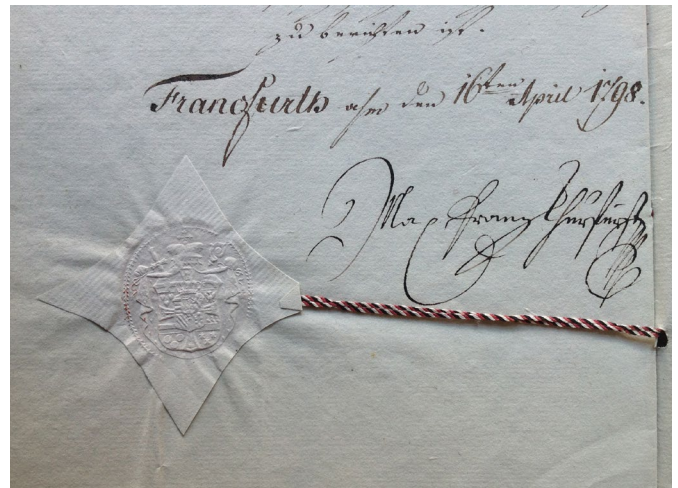 zu berichten ist.
Francfurth ahm den 16ten April 1798.
Max Franz Churfürst